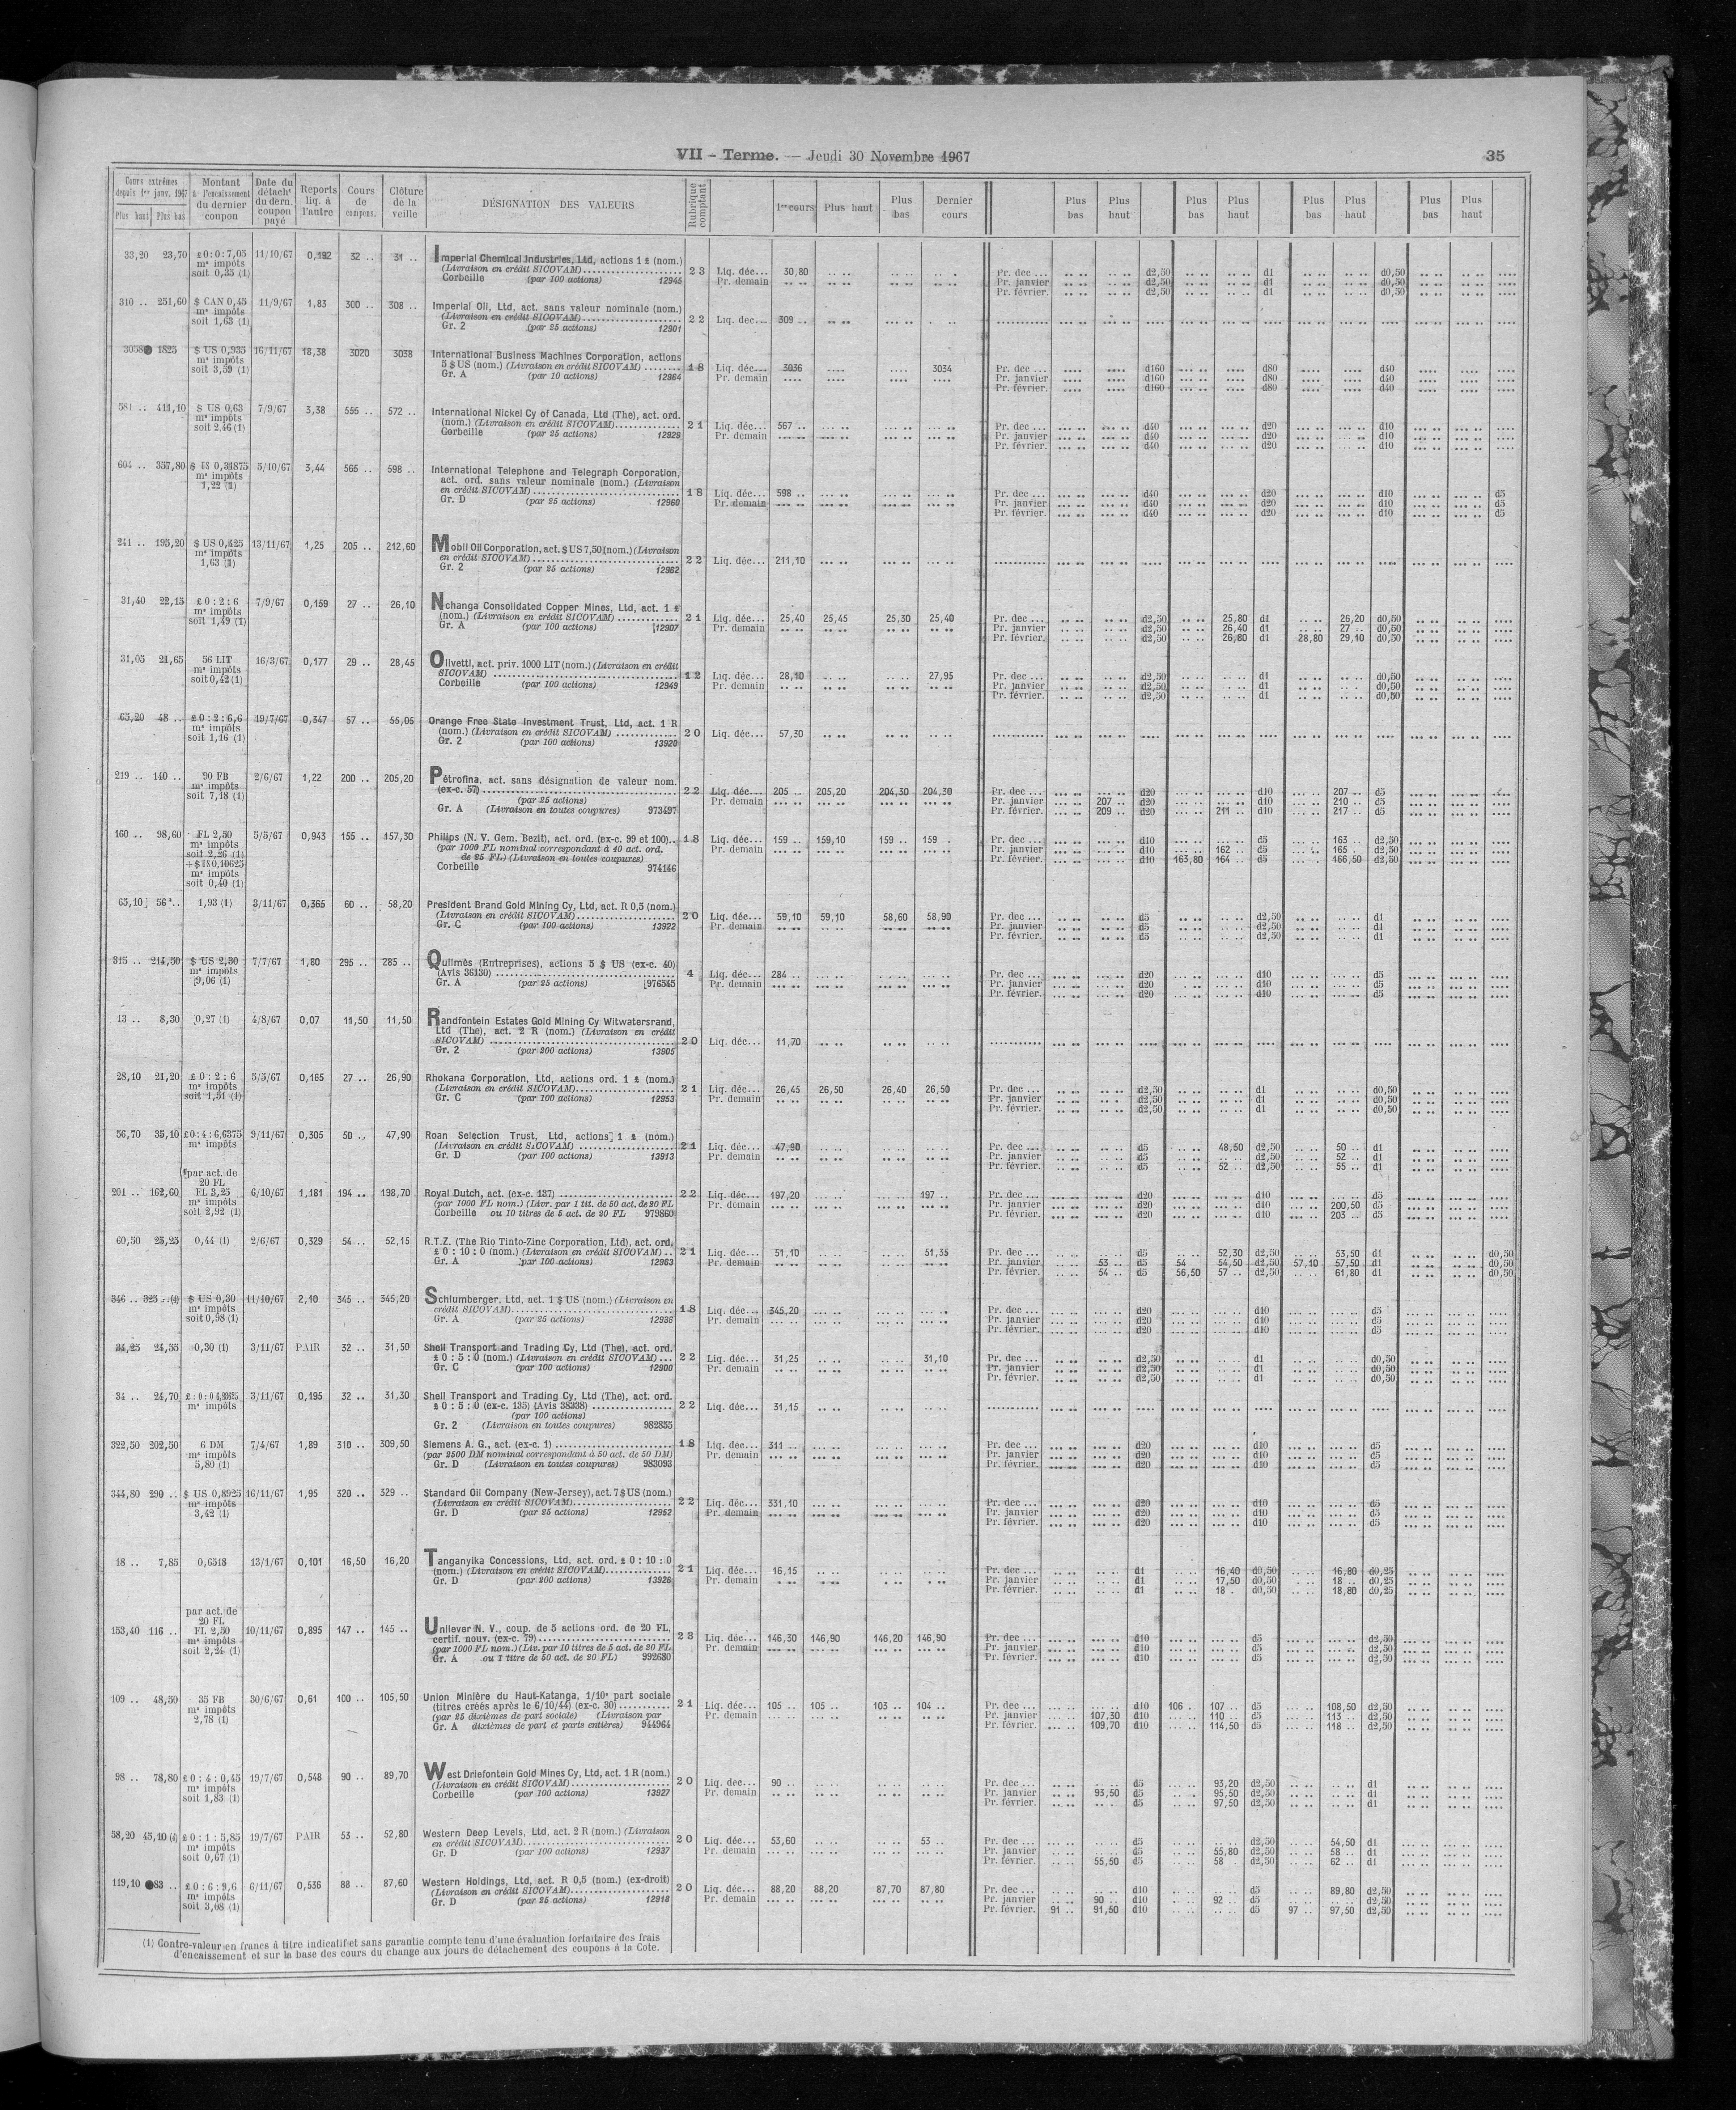 VII - Terme. — Jeudi 30 Novembre 1967
35
Cours extrêmes depuis 1er janv. 1967 Plus haut Plus bas
Montant à l'encaissement du dernier coupon
Date du détach' du dern. coupon payé
Reports liq. à l'autre
Cours de compens.
Clôture de la veille
DÉSIGNATION DES VALEURS
Rubrique comptant
1er cours Plus haut Plus bas Dernier cours
Plus bas Plus haut Plus bas Plus haut Plus bas Plus haut Plus bas Plus haut
33,20 23,70 £0:0:7,05 11/10/67 0,192 32 .. 31 .. Imperial Chemical Industries, Ltd, actions 1 £ (nom.)
m' impôts (Livraison en crédit SICOVAM) 23 Liq. déc... 30,80 Pr. dec ... d2,50 d1 d0,50
soit 0,35 (1) Corbeille (par 100 actions) 12945 Pr. demain Pr. janvier d2,50 d1 d0,50
Pr. février. d2,50 d1 d0,50
310 .. 251,60 $ CAN 0,45 11/9/67 1,83 300 .. 308 .. Imperial Oil, Ltd, act. sans valeur nominale (nom.)
m' impôts (Livraison en crédit SICOVAM) 22 Liq. dec... 309 ..
soit 1,63 (1) Gr. 2 (par 25 actions) 12901
1825 $ US 0,935 16/11/67 18,38 3020 3038 International Business Machines Corporation, actions
m' impôts 5 $ US (nom.) (Livraison en crédit SICOVAM) 18 Liq. déc... 3036 3034 Pr. dec ... d160 d80 d40
soit 3,59 (1) Gr. A (par 10 actions) 12964 Pr. demain Pr. janvier d160 d80 d40
Pr. février. d160 d80 d40
581 .. 411,10 $ US 0,63 7/9/67 3,38 555 .. 572 .. International Nickel Cy of Canada, Ltd (The), act. ord.
m' impôts (nom.) (Livraison en crédit SICOVAM) 21 Liq. déc... 567 .. Pr. dec ... d40 d20 d10
soit 2,46 (1) Corbeille (par 25 actions) 12929 Pr. demain Pr. janvier d40 d20 d10
Pr. février. d40 d20 d10
604 .. 357,80 $ US 0,31875 5/10/67 3,44 565 .. 598 .. International Telephone and Telegraph Corporation,
m' impôts act. ord. sans valeur nominale (nom.) (Livraison
1,22 (1) en crédit SICOVAM) 18 Liq. déc... 598 .. Pr. dec ... d40 d20 d10 d5
Gr. D (par 25 actions) 12960 Pr. demain Pr. janvier d40 d20 d10 d5
Pr. février. d40 d20 d10 d5
241 .. 195,20 $ US 0,425 13/11/67 1,25 205 .. 212,60 Mobil Oil Corporation, act. $ US 7,50 (nom.) (Livraison
m' impôts en crédit SICOVAM) 22 Liq. déc... 211,10
1,63 (1) Gr. 2 (par 25 actions) 12962
31,40 22,15 £ 0 : 2 : 6 7/9/67 0,159 27 .. 26,10 Nchanga Consolidated Copper Mines, Ltd, act. 1 £
m' impôts (nom.) (Livraison en crédit SICOVAM) 21 Liq. déc... 25,40 25,45 25,30 25,40 Pr. dec ... d2,50 25,80 d1 26,20 d0,50
soit 1,49 (1) Gr. A (par 100 actions) 12907 Pr. demain Pr. janvier d2,50 26,40 d1 27 .. d0,50
Pr. février. d2,50 26,80 d1 28,80 29,10 d0,50
31,05 21,65 56 LIT 16/3/67 0,177 29 .. 28,45 Olivetti, act. priv. 1000 LIT (nom.) (Livraison en crédit
m' impôts SICOVAM) 12 Liq. déc... 28,10 27,95 Pr. dec ... d2,50 d1 d0,50
soit 0,42 (1) Corbeille (par 100 actions) 12949 Pr. demain Pr. janvier d2,50 d1 d0,50
Pr. février. d2,50 d1 d0,50
65,20 48 .. £ 0 : 2 : 6,6 19/7/67 0,347 57 .. 55,05 Orange Free State Investment Trust, Ltd, act. 1 R
m' impôts (nom.) (Livraison en crédit SICOVAM) 20 Liq. déc... 57,30
soit 1,16 (1) Gr. 2 (par 100 actions) 13920
219 .. 140 .. 90 FB 2/6/67 1,22 200 .. 205,20 Pétrofina, act. sans désignation de valeur nom.
m' impôts (ex-c. 57) 22 Liq. déc... 205 .. 205,20 204,30 204,30 Pr. dec ... d20 d10 207 .. d5
soit 7,18 (1) (par 25 actions) Pr. demain Pr. janvier 207 .. d20 d10 210 .. d5
Gr. A (Livraison en toutes coupures) 973497 Pr. février. 209 .. d20 211 .. d10 217 .. d5
160 .. 98,60 FL 2,50 5/5/67 0,943 155 .. 157,30 Philips (N. V. Gem. Bezit), act. ord. (ex-c. 99 et 100).. 18 Liq. déc... 159 .. 159,10 159 .. 159 . Pr. dec ... d10 d5 163 .. d2,50
m' impôts (par 1000 FL nominal correspondant à 40 act. ord. Pr. demain Pr. janvier d10 162 .. d5 165 .. d2,50
soit 2,26 (1) de 25 FL) (Livraison en toutes coupures) Pr. février. d10 163,80 164 .. d5 166,50 d2,50
+ $ US 0,10625 Corbeille 974146
m' impôts
soit 0,40 (1)
65,10 56 .. 1,93 (1) 3/11/67 0,365 60 .. 58,20 President Brand Gold Mining Cy, Ltd, act. R 0,5 (nom.)
(Livraison en crédit SICOVAM) 20 Liq. déc... 59,10 59,10 58,60 58,90 Pr. dec ... d5 d2,50 d1
Gr. C (par 100 actions) 13922 Pr. demain Pr. janvier d5 d2,50 d1
Pr. février. d5 d2,50 d1
315 .. 214,50 $ US 2,30 7/7/67 1,80 295 .. 285 .. Quilmès (Entreprises), actions 5 $ US (ex-c. 40)
m' impôts (Avis 36130) 4 Liq. déc... 284 .. Pr. dec ... d20 d10 d5
9,06 (1) Gr. A (par 25 actions) 976545 Pr. demain Pr. janvier d20 d10 d5
Pr. février. d20 d10 d5
13 .. 8,30 0,27 (1) 4/8/67 0,07 11,50 11,50 Randfontein Estates Gold Mining Cy Witwatersrand,
Ltd (The), act. 2 R (nom.) (Livraison en crédit
SICOVAM) 20 Liq. déc... 11,70
Gr. 2 (par 200 actions) 13905
28,10 21,20 £ 0 : 2 : 6 5/5/67 0,165 27 .. 26,90 Rhokana Corporation, Ltd, actions ord. 1 £ (nom.)
m' impôts (Livraison en crédit SICOVAM) 21 Liq. déc... 26,45 26,50 26,40 26,50 Pr. dec ... d2,50 d1 d0,50
soit 1,51 (1) Gr. C (par 100 actions) 12953 Pr. demain Pr. janvier d2,50 d1 d0,50
Pr. février. d2,50 d1 d0,50
56,70 35,10 £0:4:6,6375 9/11/67 0,305 50 .. 47,90 Roan Selection Trust, Ltd, actions 1 £ (nom.)
m' impôts (Livraison en crédit SICOVAM) 21 Liq. déc... 47,90 Pr. dec ... d5 48,50 d2,50 50 .. d1
Gr. D (par 100 actions) 13913 Pr. demain Pr. janvier d5 d2,50 52 .. d1
Pr. février. d5 52 .. d2,50 55 .. d1
par act. de
20 FL
201 .. 162,60 FL 3,25 6/10/67 1,181 194 .. 198,70 Royal Dutch, act. (ex-c. 137) 22 Liq. déc... 197,20 197 .. Pr. dec ... d20 d10 d5
m' impôts (par 1000 FL nom.) (Livr. par 1 tit. de 50 act. de 20 FL Pr. demain Pr. janvier d20 d10 200,50 d5
soit 2,92 (1) Corbeille ou 10 titres de 5 act. de 20 FL 979860 Pr. février. d20 d10 203 .. d5
60,50 25,25 0,44 (1) 2/6/67 0,329 54 .. 52,15 R.T.Z. (The Rio Tinto-Zinc Corporation, Ltd), act. ord.
£ 0 : 10 : 0 (nom.) (Livraison en crédit SICOVAM) .. 21 Liq. déc... 51,10 51,35 Pr. dec ... d5 52,30 d2,50 53,50 d1 d0,50
Gr. A (par 100 actions) 12963 Pr. demain Pr. janvier 53 .. d5 54 54,50 d2,50 57,10 57,50 d1 d0,50
Pr. février. 54 .. d5 56,50 57 .. d2,50 61,80 d1 d0,50
346 .. 325 .. (1) $ US 0,30 11/10/67 2,10 345 .. 345,20 Schlumberger, Ltd, act. 1 $ US (nom.) (Livraison en
m' impôts crédit SICOVAM) 18 Liq. déc... 345,20 Pr. dec ... d20 d10 d5
soit 0,98 (1) Gr. A (par 25 actions) Pr. demain Pr. janvier d20 d10 d5
Pr. février. d20 d10 d5
34,25 24,55 0,30 (1) 3/11/67 PAIR 32 .. 31,50 Shell Transport and Trading Cy, Ltd (The), act. ord.
£ 0 : 5 : 0 (nom.) (Livraison en crédit SICOVAM) ... 22 Liq. déc... 31,25 31,10 Pr. dec ... d2,50 d1 d0,50
Gr. C (par 100 actions) 12900 Pr. demain Pr. janvier d2,50 d1 d0,50
Pr. février. d2,50 d1 d0,50
34 .. 24,70 3/11/67 0,195 32 .. 31,30 Shell Transport and Trading Cy, Ltd (The), act. ord.
m' impôts £ 0 : 5 : 0 (ex-c. 135) (Avis 38338) 22 Liq. déc... 31,15
(par 100 actions)
Gr. 2 (Livraison en toutes coupures) 982855
322,50 202,50 6 DM 7/4/67 1,89 310 .. 309,50 Siemens A. G., act. (ex-c. 1) 18 Liq. déc... 311 .. Pr. dec ... d20 d10 d5
m' impôts (par 2500 DM nominal correspondant à 50 act. de 50 DM) Pr. demain Pr. janvier d20 d10 d5
5,80 (1) Gr. D (Livraison en toutes coupures) 983093 Pr. février. d20 d10 d5
344,80 290 .. $ US 0,8925 16/11/67 1,95 320 .. 329 .. Standard Oil Company (New-Jersey), act. 7 $ US (nom.)
m' impôts (Livraison en crédit SICOVAM) 22 Liq. déc... 331,10 Pr. dec ... d20 d10 d5
3,42 (1) Gr. D (par 25 actions) 12952 Pr. demain Pr. janvier d20 d10 d5
Pr. février. d20 d10 d5
18 .. 7,85 0,6518 13/1/67 0,101 16,50 16,20 Tanganyika Concessions, Ltd, act. ord. £ 0 : 10 : 0
(nom.) (Livraison en crédit SICOVAM) 21 Liq. déc... 16,15 Pr. dec ... d1 16,40 d0,50 16,80 d0,25
Gr. D (par 200 actions) 13926 Pr. demain Pr. janvier d1 17,50 d0,50 18 .. d0,25
Pr. février. d1 18 . d0,50 18,80 d0,25
par act. de
20 FL
153,40 116 .. FL 2,50 10/11/67 0,895 147 .. 145 .. Unilever N. V., coup. de 5 actions ord. de 20 FL,
m' impôts certif. nouv. (ex-c. 79) 23 Liq. déc... 146,30 146,90 146,20 146,90 Pr. dec ... d10 d5 d2,50
soit 2,24 (1) (par 1000 FL nom.) (Liv. par 10 titres de 5 act. de 20 FL Pr. demain Pr. janvier d10 d5 d2,50
Gr. A ou 1 titre de 50 act. de 20 FL) 992680 Pr. février. d10 d5 d2,50
109 .. 48,50 35 FB 30/6/67 0,61 100 .. 105,50 Union Minière du Haut-Katanga, 1/10e part sociale
m' impôts (titres créés après le 6/10/44) (ex-c. 30) 21 Liq. déc... 105 .. 105 .. 103 .. 104 .. Pr. dec ... d10 106 .. 107 .. d5 108,50 d2,50
2,78 (1) (par 25 dixièmes de part sociale) (Livraison par Pr. demain Pr. janvier 107,30 d10 110 .. d5 113 .. d2,50
Gr. A dixièmes de part et parts entières) 944964 Pr. février. 109,70 d10 114,50 d5 118 .. d2,50
98 .. 78,80 £ 0 : 4 : 0,45 19/7/67 0,548 90 .. 89,70 West Driefontein Gold Mines Cy, Ltd, act. 1 R (nom.)
m' impôts (Livraison en crédit SICOVAM) 20 Liq. déc... 90 .. Pr. dec ... d5 93,20 d2,50 d1
soit 1,83 (1) Corbeille (par 100 actions) 13927 Pr. demain Pr. janvier 93,50 d5 95,50 d2,50 d1
Pr. février. d5 97,50 d2,50 d1
58,20 45,10 (1) £ 0 : 1 : 5,85 19/7/67 PAIR 53 .. 52,80 Western Deep Levels, Ltd, act. 2 R (nom.) (Livraison
m' impôts en crédit SICOVAM) 20 Liq. déc... 53,60 53 .. Pr. dec ... d5 d2,50 54,50 d1
soit 0,67 (1) Gr. D (par 100 actions) 12937 Pr. demain Pr. janvier d5 55,80 d2,50 58 .. d1
Pr. février. 55,50 d5 58 .. d2,50 62 .. d1
119,10 ●83 .. £ 0 : 6 : 9,6 6/11/67 0,536 88 .. 87,60 Western Holdings, Ltd, act. R 0,5 (nom.) (ex-droit)
m' impôts (Livraison en crédit SICOVAM) 20 Liq. déc... 88,20 88,20 87,70 87,80 Pr. dec ... d10 d5 89,80 d2,50
soit 3,08 (1) Gr. D (par 25 actions) 12918 Pr. demain Pr. janvier 90 .. d10 92 .. d5 d2,50
Pr. février. 91 .. 91,50 d10 d5 97 .. 97,50 d2,50
(1) Contre-valeur en francs à titre indicatif et sans garantie compte tenu d'une évaluation forfaitaire des frais
d'encaissement et sur la base des cours du change aux jours de détachement des coupons à la Cote.